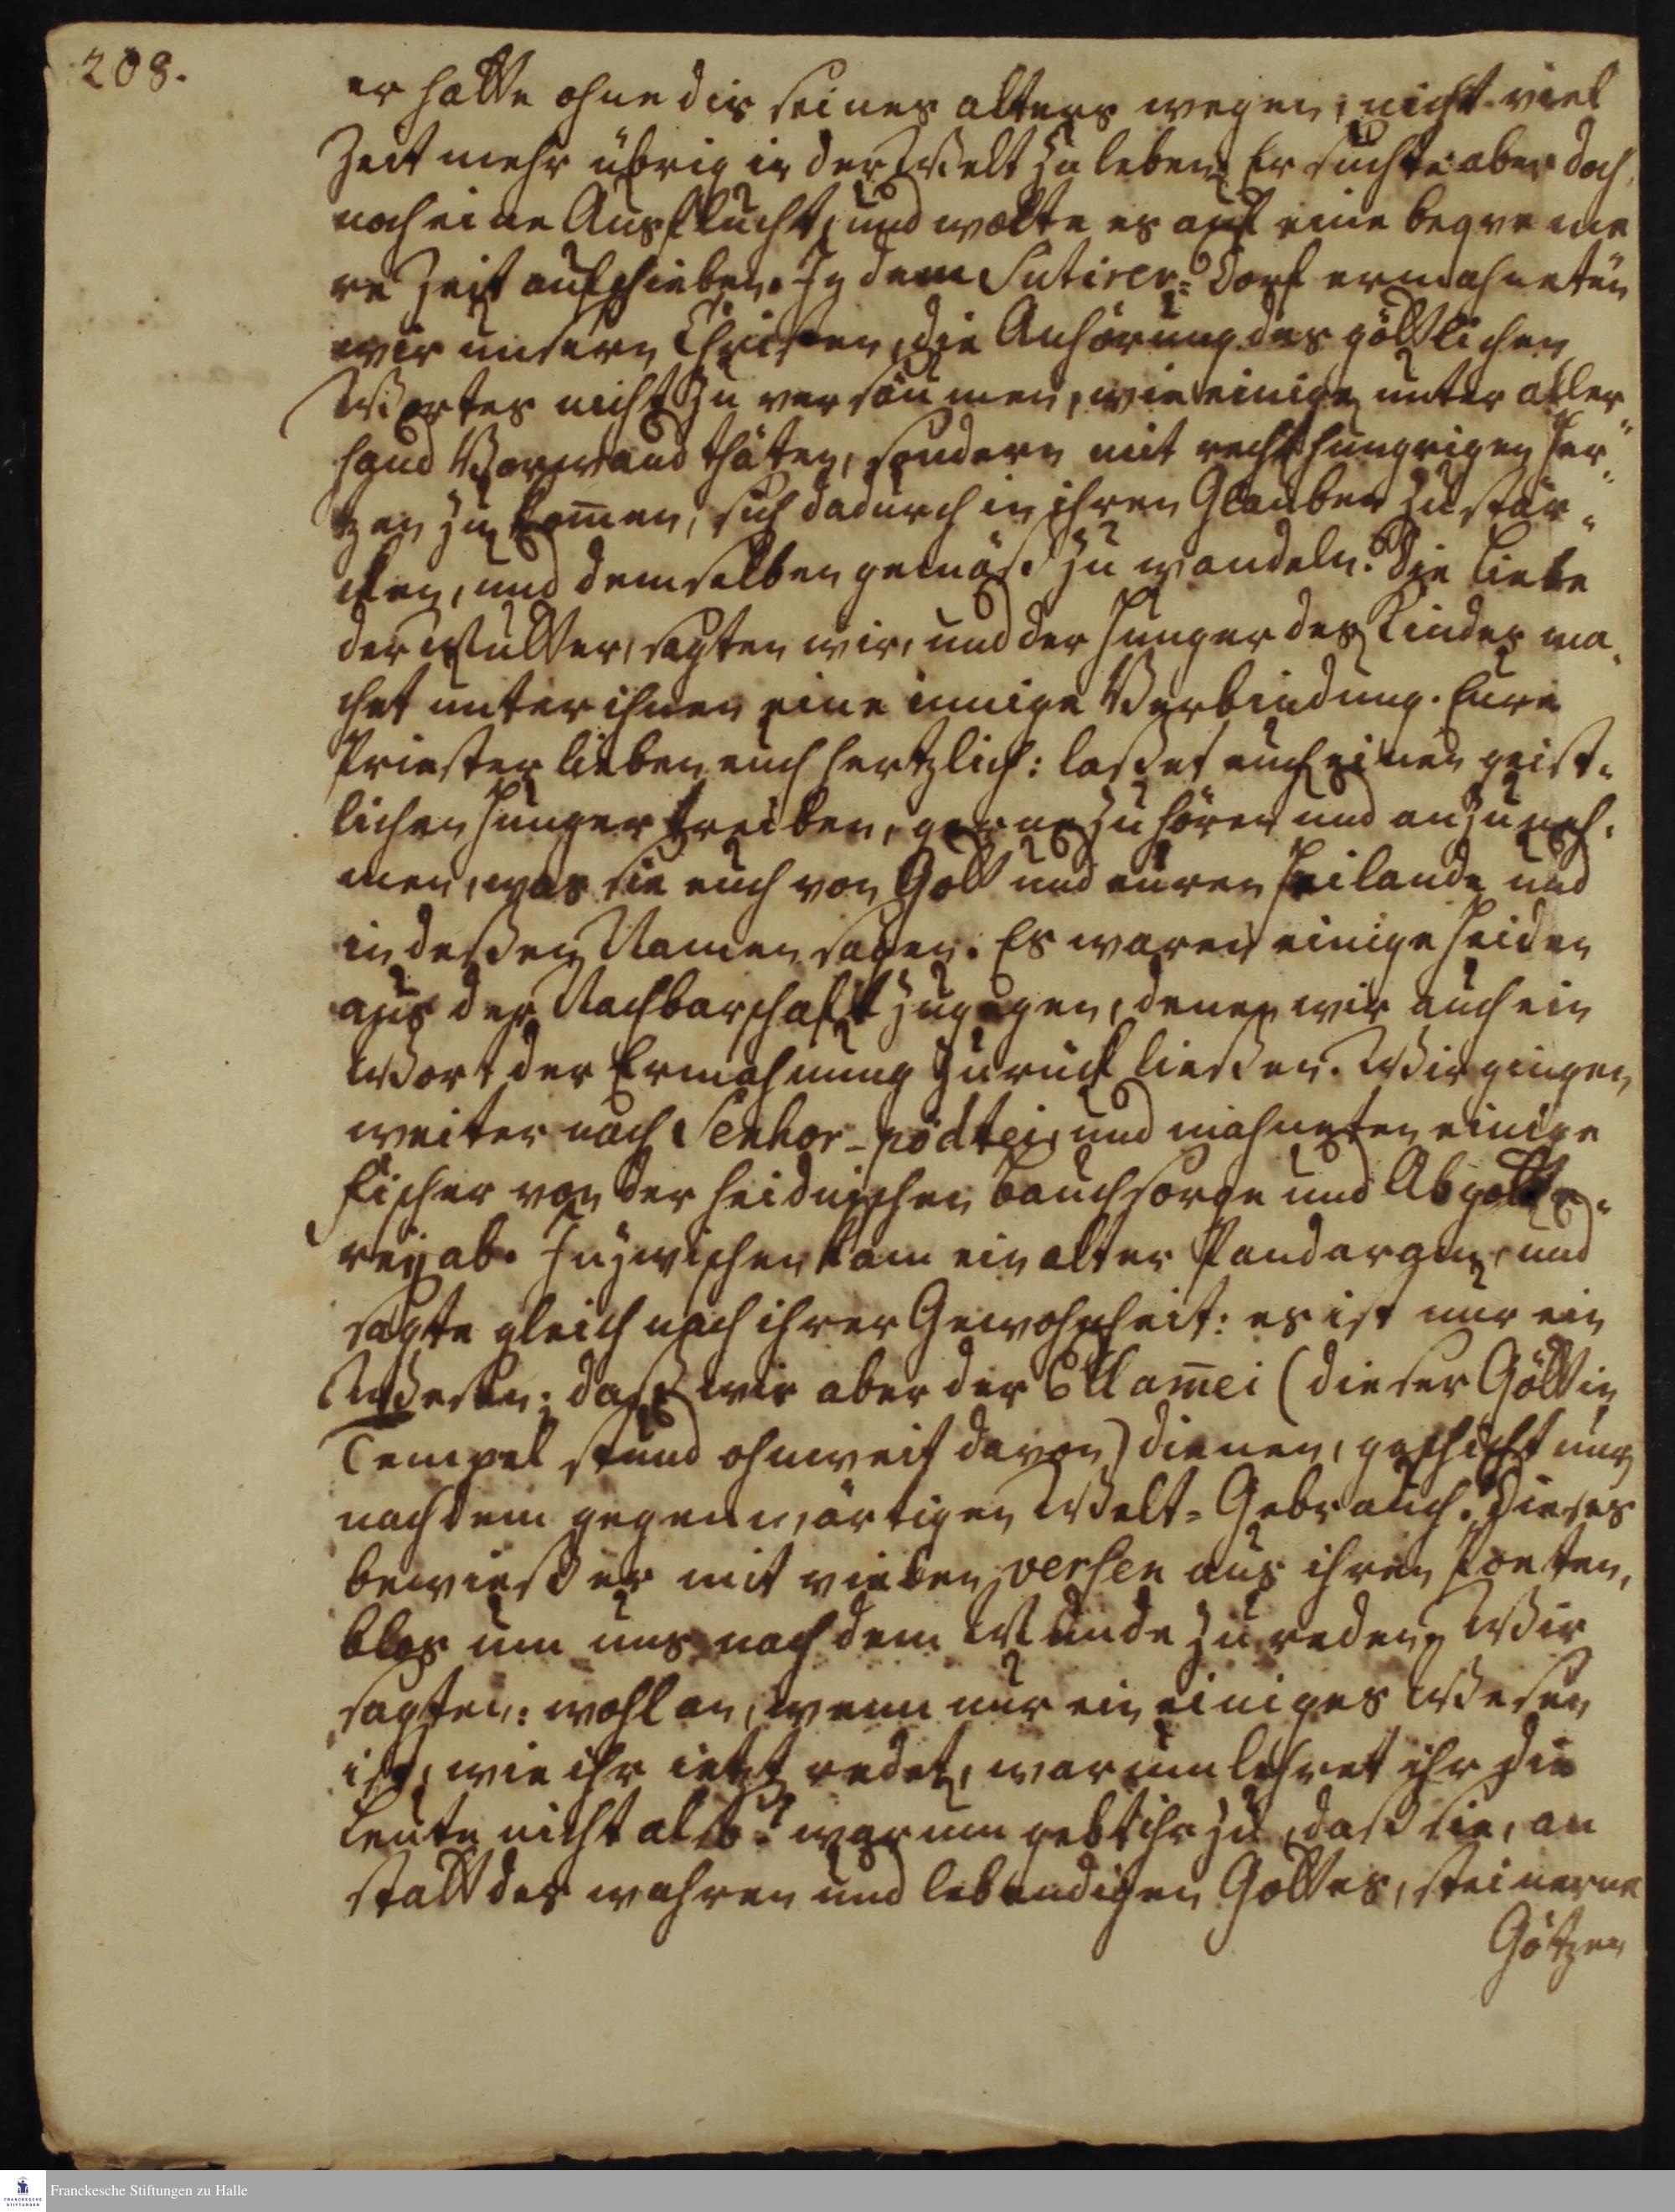 208.
er hatte ohne dis seines alters wegen, nicht viel
Zeit mehr übrig in der Welt zu leben. Er suchte aber doch
noch eine Ausflucht, und wolte es auf eine beqveme
re Zeit aufschieben. In dem Sutirer-Dorf ermahneten
wir unsern Christen, die Anhörung des göttlichen
Wortes nicht zu versäumen, wie einige unter aller-
hand Vorwand thäten, sondern mit recht hungrigen Her-
tzen zu kom̅en, sich dadurch in ihren Glauben zu stär-
cken, und demselben gemäß zu wandeln. Die Liebe
der Mutter, sagten wir, und der Hunger des Kindes ma-
chet unter ihnen eine innige Verbindung. Eure
Priester lieben euch hertzlich: laßet euch einen geist-
lichen Hunger treiben, gerne zu hören und anzuneh-
men, was sie euch von Gott und euren Heilande und
in deßen Namen sagen. Es waren einige Heiden
aus der Nachbarschafft zugegen, denen wir auch ein
Wort der Ermahnung zurück ließen. Wir gingen
weiter nach Senhor-pödtei, und mahneten einige
Fischer von der heidnischen Bauchsorge und Abgötte-
rey ab. Inzwischen kam ein alter Pandaram, und
sagte gleich nach ihrer Gewohnheit: es ist nur ein
Wesen; daß wir aber der Ellam̅ei (dieser Göttin
Tempel stund ohnweit davon) dienen, geschicht nur
nach dem gegenwärtigen Welt-Gebrauch. Dieses
bewieß er mit vielen versen aus ihren Poeten,
blos um uns nach dem Munde zu reden. Wir
sagten: wohlan, wenn nur ein einiges Wesen
ist, wie ihr ietzt redet, warum lehret ihr die
Leute nicht also? warum gebt ihr zu, daß sie, an
statt des wahren und lebendigen Gottes, steinerne
Götzen
Franckesche Stiftungen zu Halle
FRANCKESCHE
STIFTUNGEN